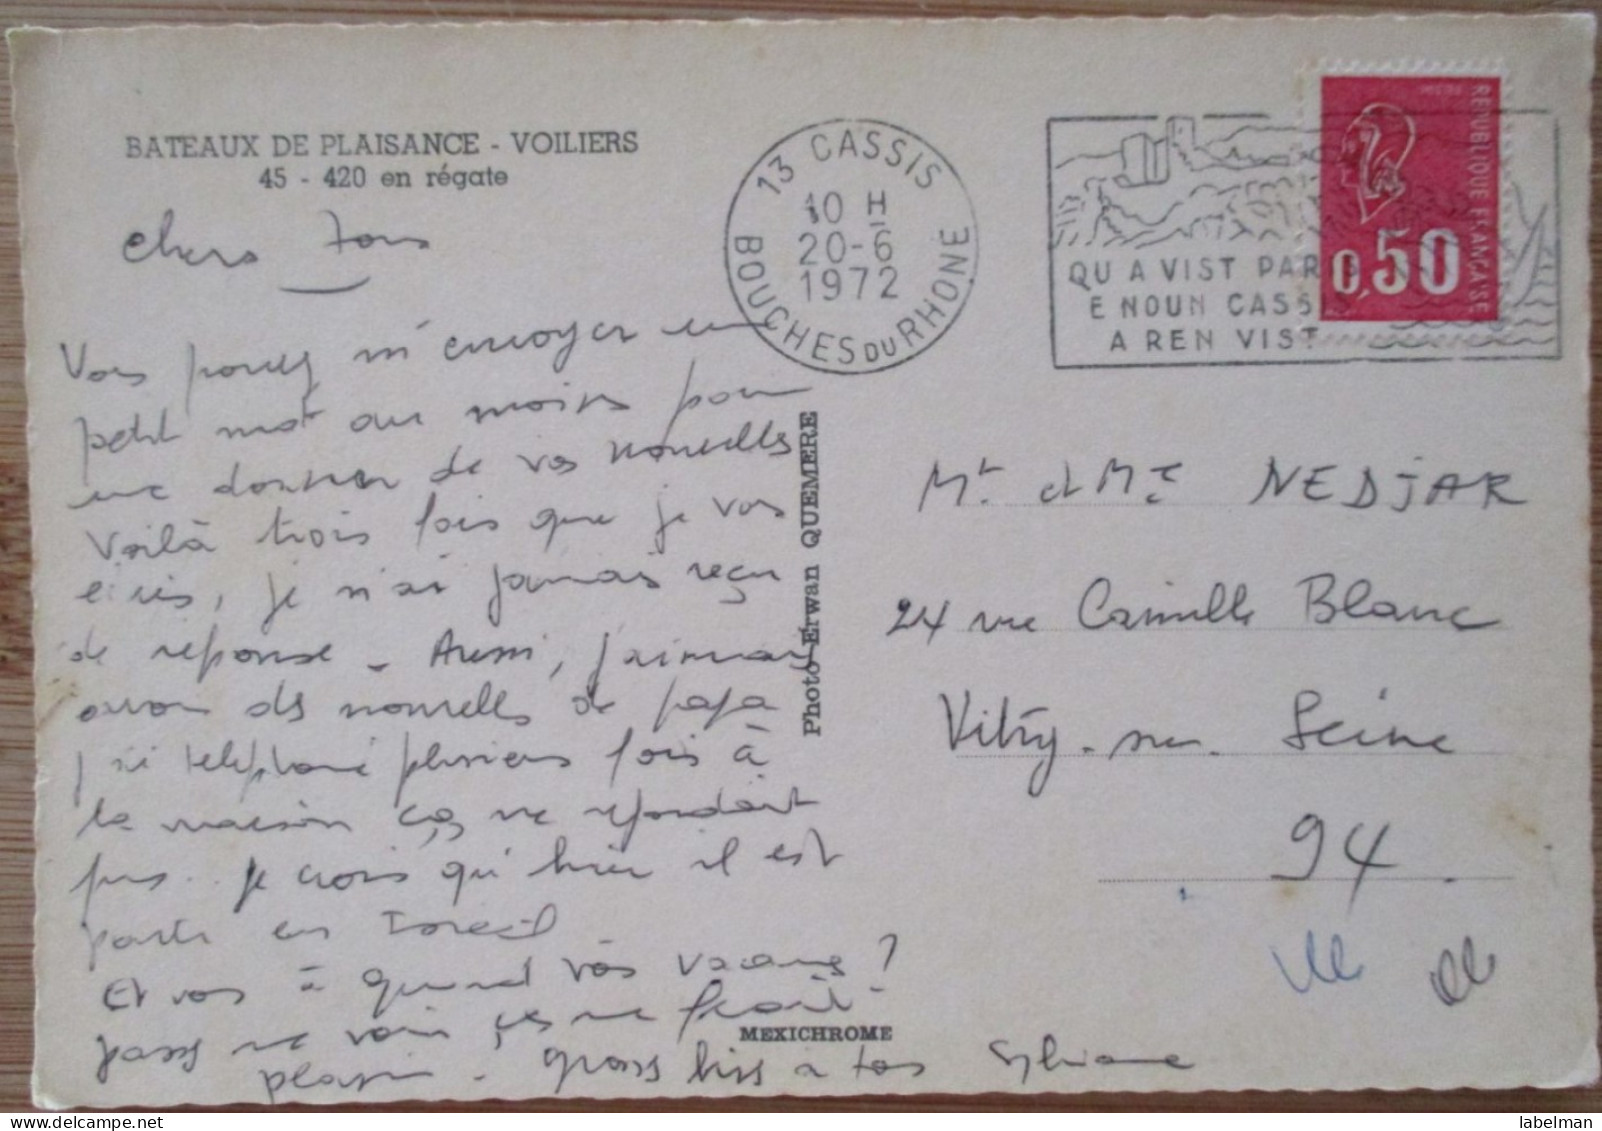 BATEAUX DE PLAISANCE - VOILIERS
45 - 420 en régate
chers tous
Vous pouvez m'envoyer un
petit mot au moins pour
me donner de vos nouvelles
Voilà trois fois que je vous
écris, je n'ai jamais reçu
de réponse - Aussi, j'aimerais
avoir des nouvelles de papa
j'ai telephoné plusieurs fois à
la maison ça ne repondait
pas.. je crois qu'hier il est
parti en Israël
Et vous à quand vos vacances ?
passez me voir ça me ferait
plaisir - gros bises à tous Sylviane
13 CASSIS
10 H
20-6
1972
BOUCHES DU RHONE
QU A VIST PARIS
E NOUN CASSIS
A REN VIST
REPUBLIQUE FRANÇAISE
0,50
Photo Erwan QUEMERE
MEXICHROME
Mr et Mme NEDJAR
24 rue Camille Blanc
Vitry-sur-Seine
94.
labelman
delcampe.net